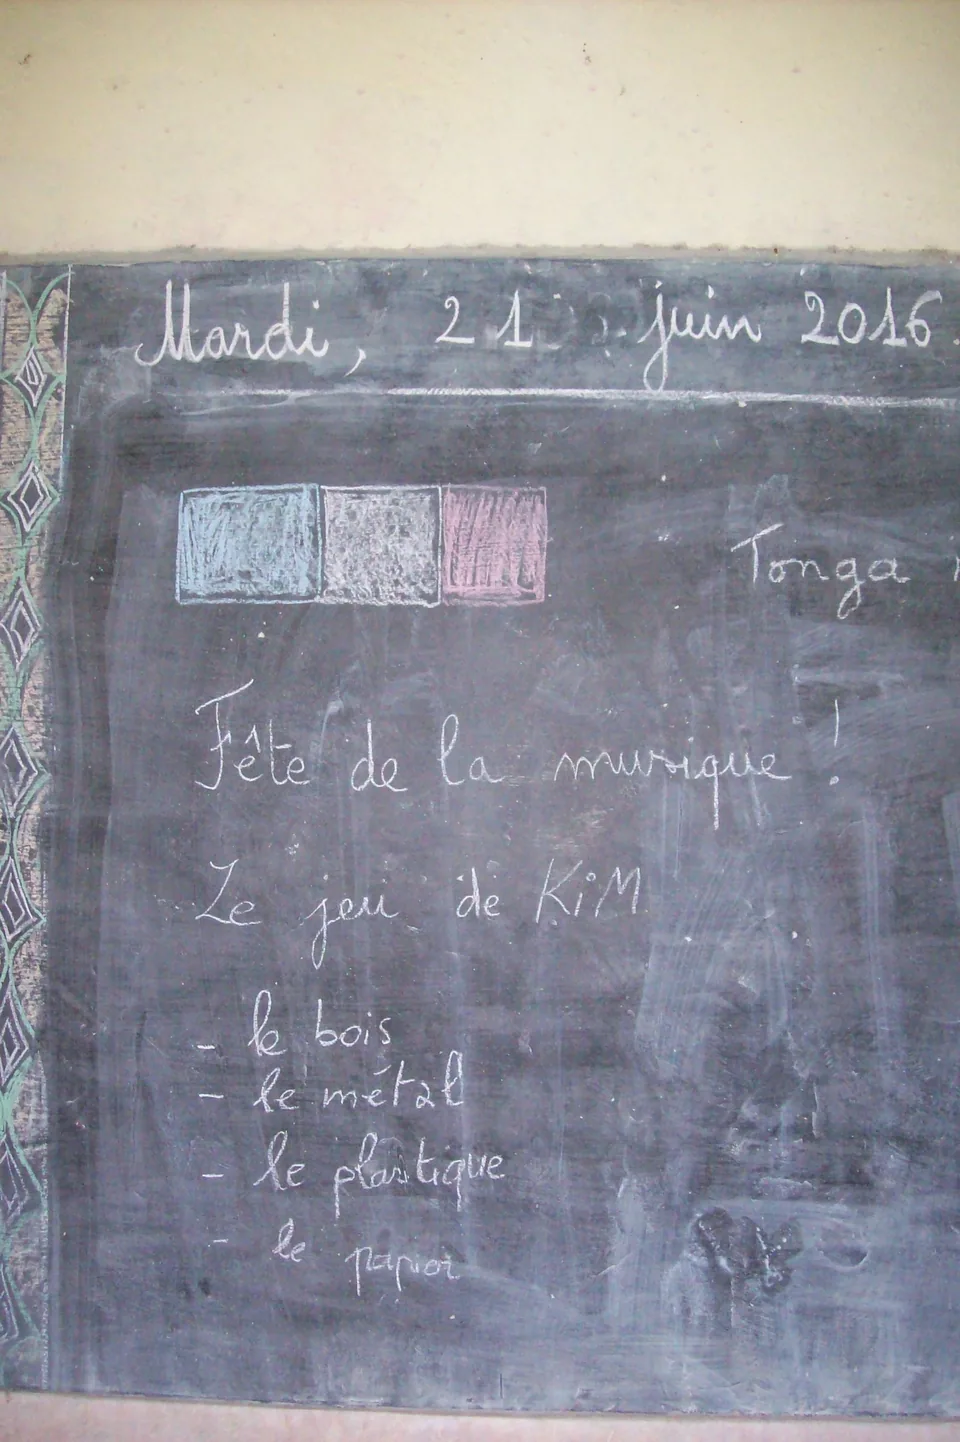 Mardi, 21 juin 2016.
Tonga
Fête de la musique !
Le jeu de KiM
- le bois
- le métal
- le plastique
- le papier